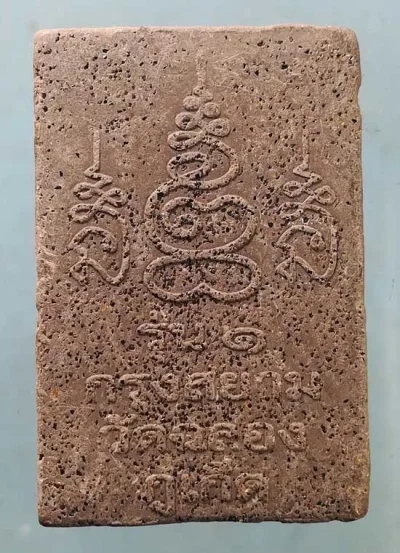 รุ่น ๑
กรุงสยาม
วัดฉลอง
ภูเก็ต